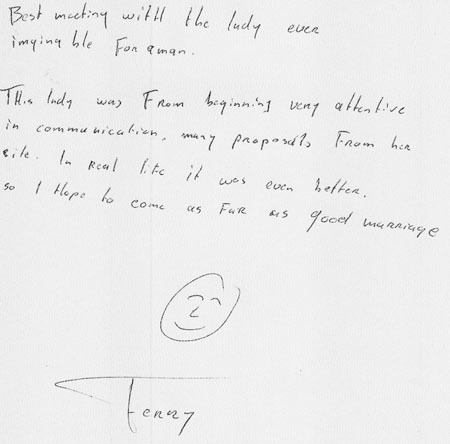 Best meeting with the lady ever
imginable For aman.
This lady was From beginning very attentive
in communication, many proposals From her
site. In Real life it was even better.
so I Hope to come as FaR as good marriage
Terry